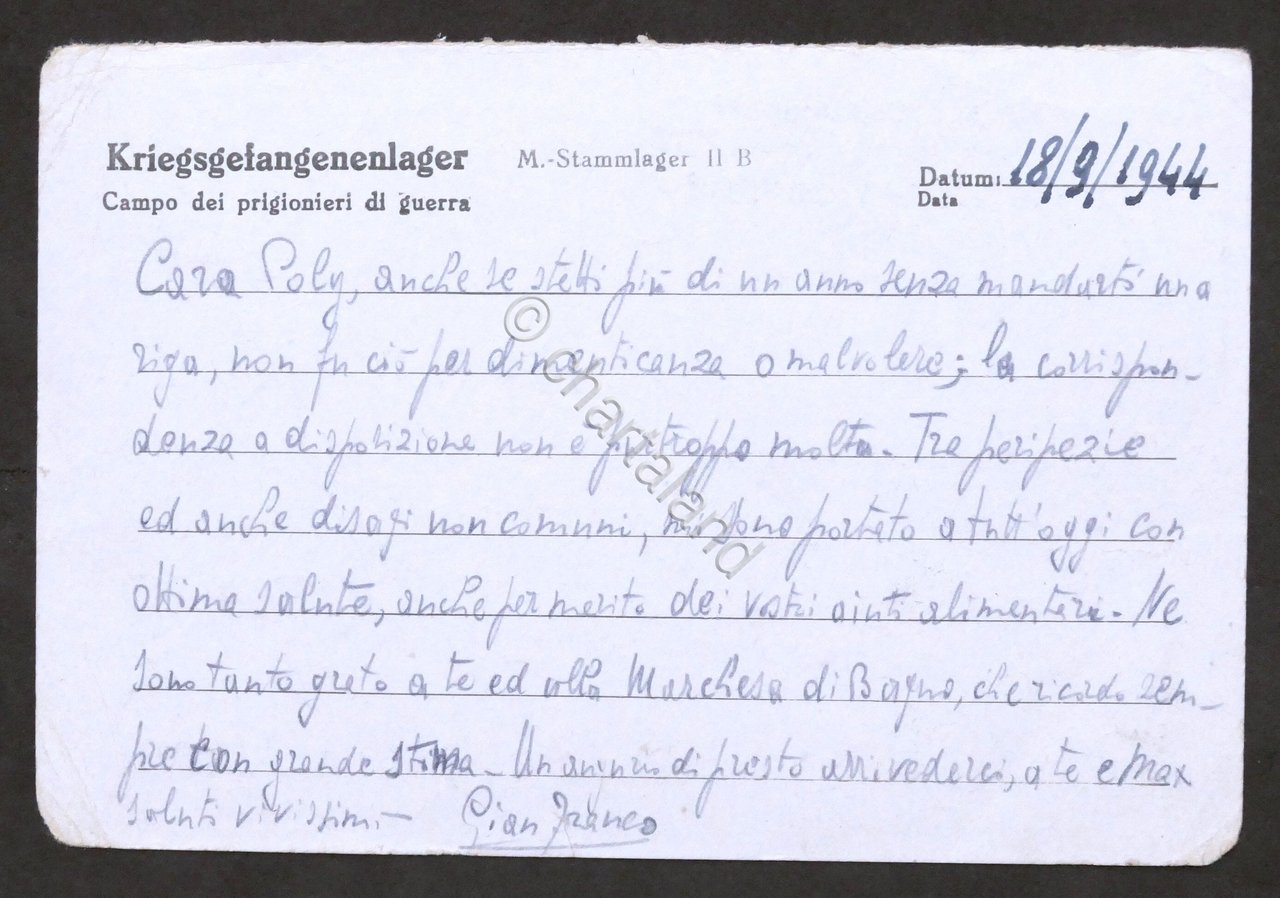 Kriegsgefangenenlager M.-Stammlager II B
Campo dei prigionieri di guerra
Datum: 18/9/1944
Data
Cara Poly, anche se stetti più di un anno senza mandarti una
riga, non fu ciò per dimenticanza o malvolere; la corrispon-
denza a disposizione non e purtroppo molta. Tra peripezie
ed anche disagi non comuni, mi sono portato a tutt'oggi con
ottima salute, anche per merito dei vostri aiuti alimentari. Ne
sono tanto grato a te ed alla Marchesa di Bagno, che ricordo sem-
pre con grande stima. Un augurio di presto arrivederci, a te e Max
saluti vivissimi - Gian Franco
© chartaland